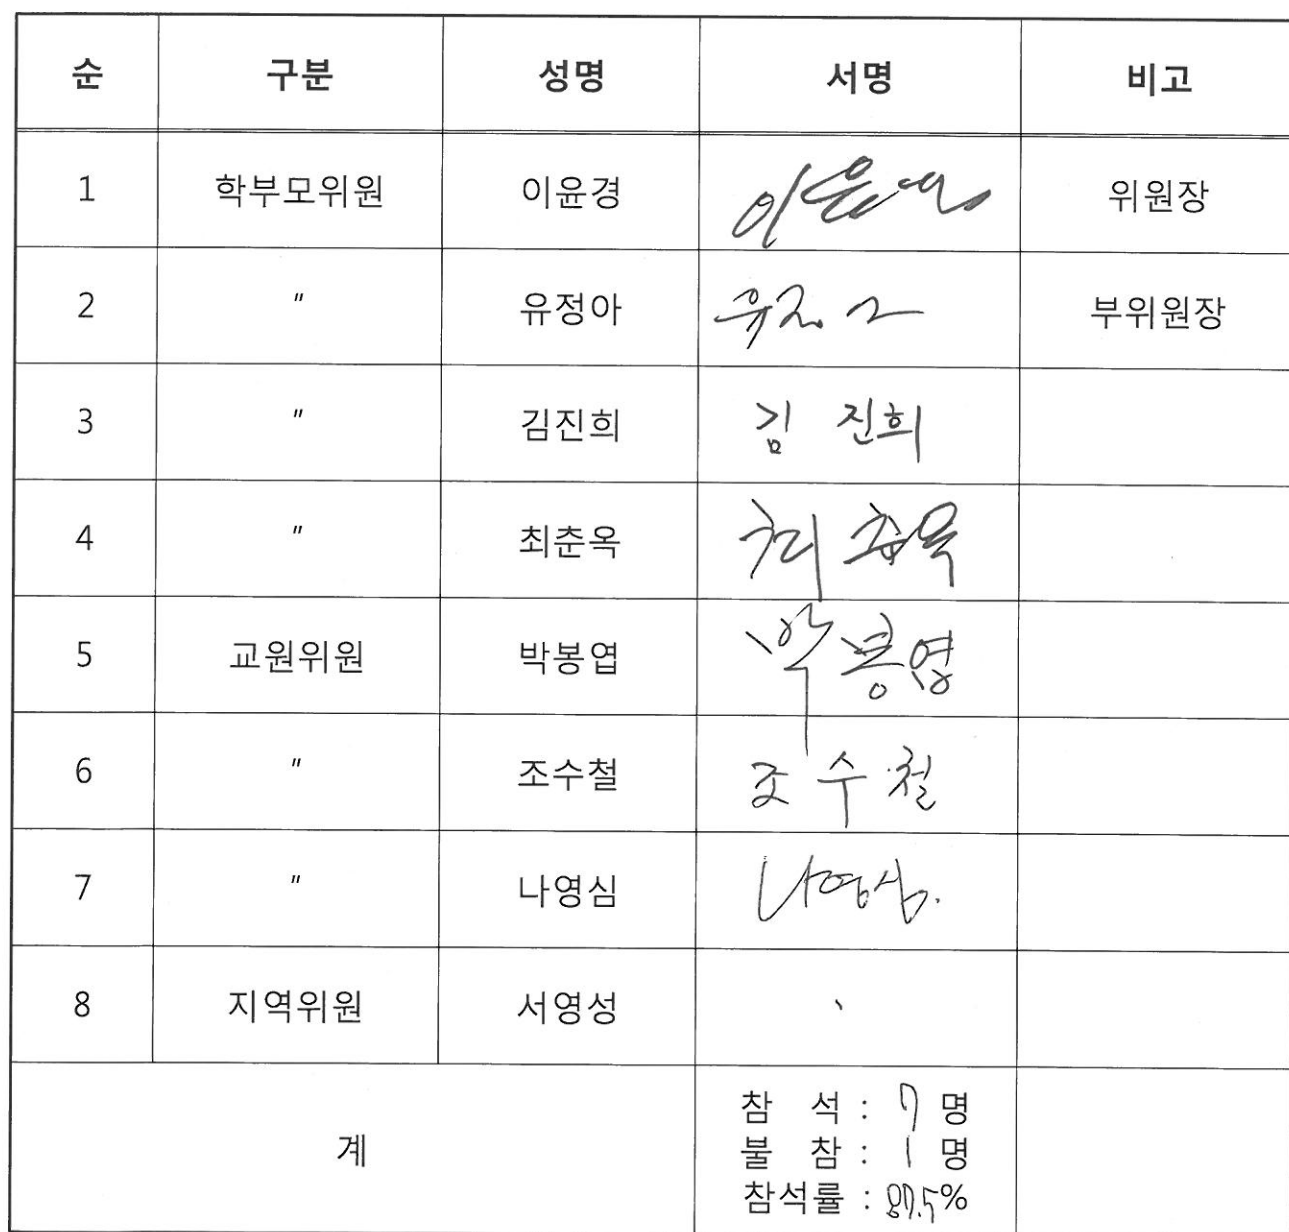 순 구분 성명 서명 비고
1 학부모위원 이윤경 이윤경 위원장
2 " 유정아 유정아 부위원장
3 " 김진희 김 진희
4 " 최춘옥 최춘옥
5 교원위원 박봉엽 박봉엽
6 " 조수철 조수철
7 " 나영심 나영심.
8 지역위원 서영성
계
참 석 : 7 명
불 참 : 1 명
참석률 : 87.5%